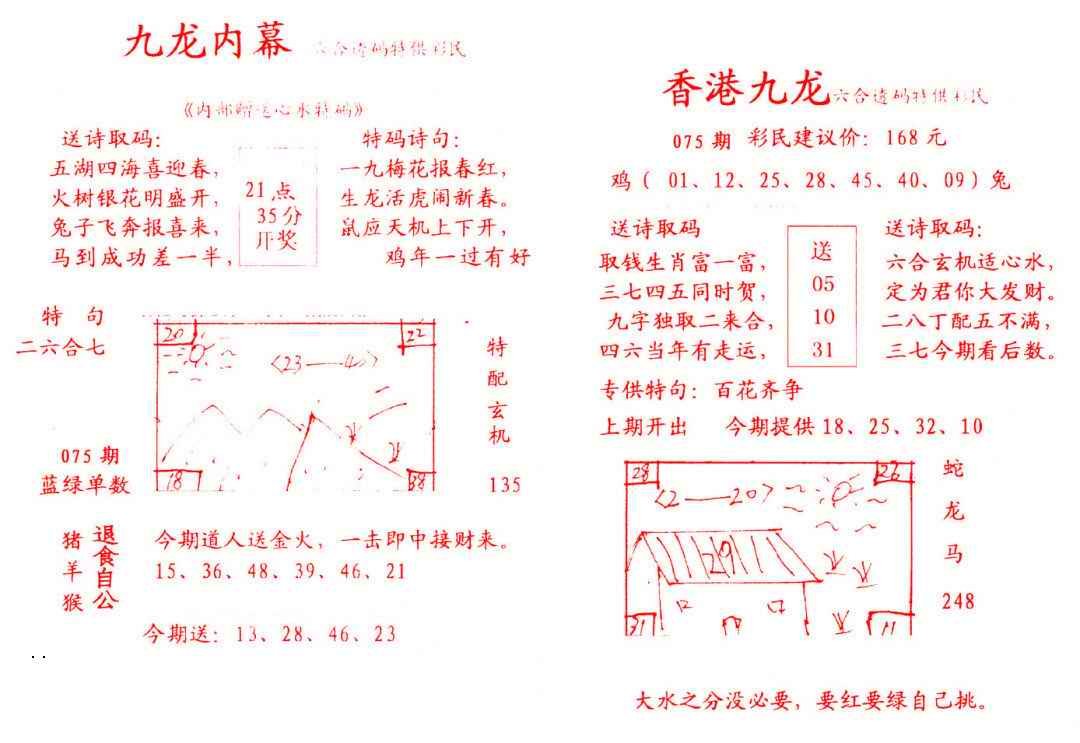 九龙内幕 六合透码特供彩民
《内部赠送心水特码》
送诗取码:
五湖四海喜迎春,
火树银花明盛开,
兔子飞奔报喜来,
马到成功差一半,
21点
35分
开奖
特码诗句:
一九梅花报春红,
生龙活虎闹新春。
鼠应天机上下开,
鸡年一过有好
特 句
二六合七
075 期
蓝绿单数
20
22
<23——40>
18
38
特
配
玄
机
135
猪
羊
猴
退
食
自
公
今期道人送金火, 一击即中接财来。
15、36、48、39、46、21
今期送: 13、28、46、23
香港九龙 六合透码特供彩民
075 期 彩民建议价: 168 元
鸡 ( 01、12、25、28、45、40、09 ) 兔
送诗取码
取钱生肖富一富,
三七四五同时贺,
九字独取二来合,
四六当年有走运,
送
05
10
31
送诗取码:
六合玄机适心水,
定为君你大发财。
二八丁配五不满,
三七今期看后数。
专供特句: 百花齐争
上期开出 今期提供 18、25、32、10
28
26
<2——20>
29
31
11
蛇
龙
马
248
大水之分没必要, 要红要绿自己挑。